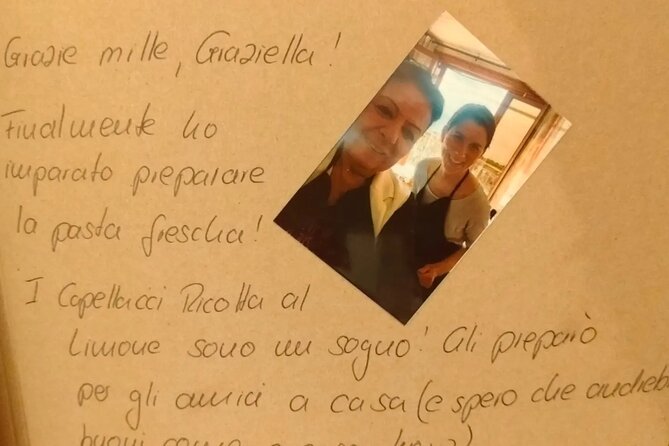 Grazie mille, Graziella!
Finalmente ho
imparato preparare
la pasta frescha!
I Capellacci Ricotta al
Limone sono un sogno! Gli preparò
per gli amici a casa (e spero che